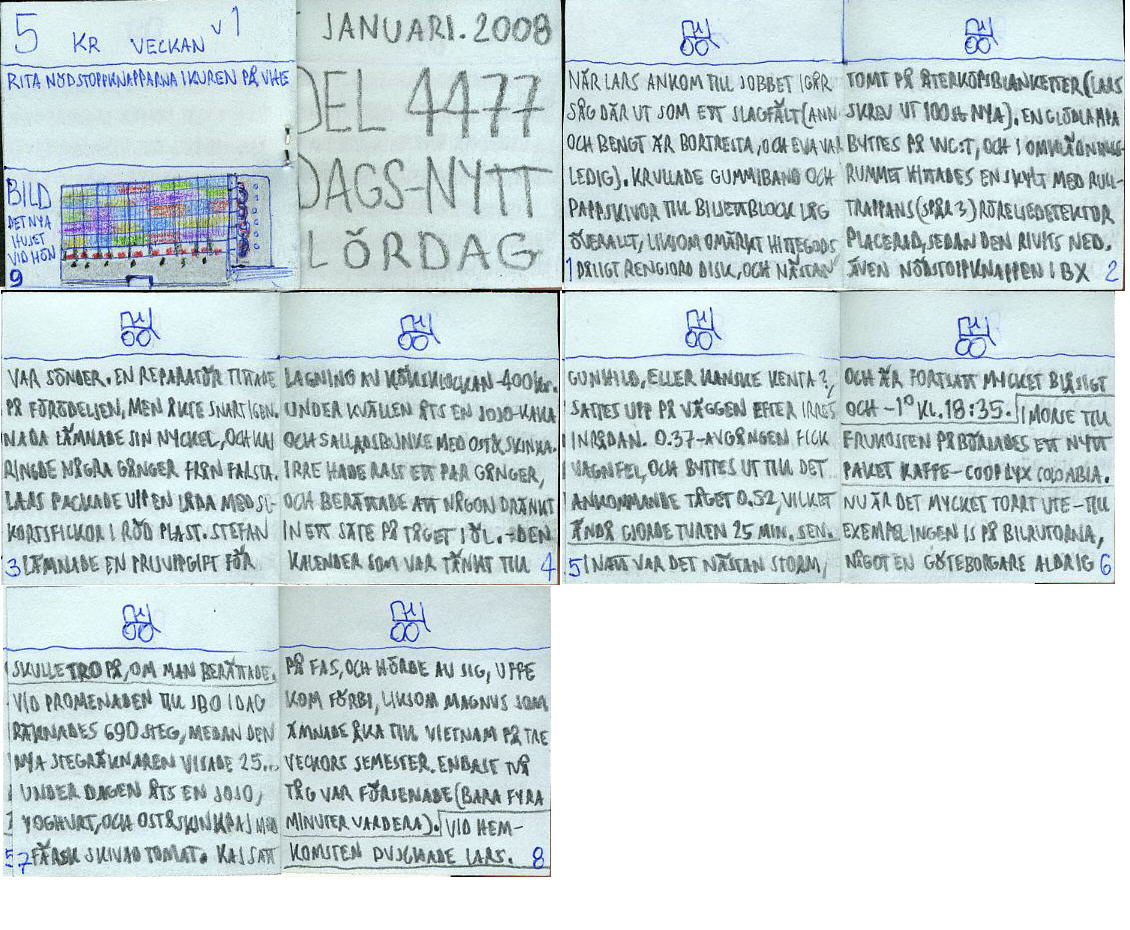 5 KR VECKAN v1
RITA NÖDSTOPPKNAPPARNA I KUREN PÅ
BILD
DET NYA
HUSET
VID HÖN
9
JANUARI. 2008
DEL 4477
DAGS-NYTT
LÖRDAG
NÄR LARS ANKOM TILL JOBBET IGÅR
SÅG DÄR UT SOM ETT SLAGFÄLT (ANN
OCH BENGT ÄR BORTRESTA, OCH EVA VAR
LEDIG). KRULLADE GUMMIBAND OCH
PAPPSKIVOR TILL BILJETTBLOCK LÅG
ÖVERALLT, LIKSOM OMÄRKT HITTEGODS
1 DÅLIGT RENGJORD DISK, OCH NÄSTAN
TOMT PÅ ÅTERKÖPSBLANKETTER (LARS
SKREV UT 100 st NYA). EN GLÖDLAMPA
BYTTES PÅ WC:T, OCH I OMKLÄDNINGS-
RUMMET HITTADES EN SKYLT MED RULL-
TRAPPANS (SPÅR 3) RÖRELSEDETEKTOR
PLACERAD, SEDAN DEN RIVITS NED.
ÄVEN NÖDSTOPPKNAPPEN I BX 2
VAR SÖNDER. EN REPARATÖR TITTADE
PÅ FÖRÖDELSEN, MEN ÅKTE SNART IGEN.
NADA LÄMNADE SIN NYCKEL, OCH KAJ
RINGDE NÅGRA GÅNGER FRÅN FARSTA.
LARS PACKADE UPP EN LÅDA MED SL-
KORTSFICKOR I RÖD PLAST. STEFAN
3 LÄMNADE EN PRISUPPGIFT FÖR
LAGNING AV KÖKSKLOCKAN -400 kr.
UNDER KVÄLLEN ÅTS EN JOJO-KAKA
OCH SALLADSBUNKE MED OST & SKINKA.
IRRE HADE RAST ETT PAR GÅNGER,
OCH BERÄTTADE ATT NÅGON DRÄNKT
IN ETT SÄTE PÅ TÅGET I ÖL. - DEN
KALENDER SOM VAR TÄNKT TILL 4
GUNHILD, ELLER KANSKE KENTA?,
SATTES UPP PÅ VÄGGEN EFTER IRRES
INRÅDAN. 0.37-AVGÅNGEN FICK
VAGNFEL, OCH BYTTES UT TILL DET
ANKOMMANDE TÅGET 0.52, VILKET
ÄNDÅ GJORDE TUREN 25 MIN. SEN.
5 I NATT VAR DET NÄSTAN STORM,
OCH ÄR FORTSATT MYCKET BLÅSIGT
OCH -1° KL. 18:35. I MORSE TILL
FRUKOSTEN PÅBÖRJADES ETT NYTT
PAKET KAFFE - COOP LYX COLOMBIA.
NU ÄR DET MYCKET TORRT UTE - TILL
EXEMPEL INGEN IS PÅ BILRUTORNA,
NÅGOT EN GÖTEBORGARE ALDRIG 6
SKULLE TRO PÅ, OM MAN BERÄTTADE.
VID PROMENADEN TILL JBO IDAG
RÄKNADES 690 STEG, MEDAN DEN
NYA STEGRÄKNAREN VISADE 25...
UNDER DAGEN ÅTS EN JOJO,
YOGHURT, OCH OST & SKINKPAJ MED
7 FÄRSK SKIVAD TOMAT. KAJ SATT
PÅ FAS, OCH HÖRDE AV SIG, UFFE
KOM FÖRBI, LIKSOM MAGNUS SOM
ÄMNADE ÅKA TILL VIETNAM PÅ TRE
VECKORS SEMESTER. ENDAST TVÅ
TÅG VAR FÖRSENADE (BARA FYRA
MINUTER VARDERA). VID HEM-
KOMSTEN DUSCHADE LARS. 8